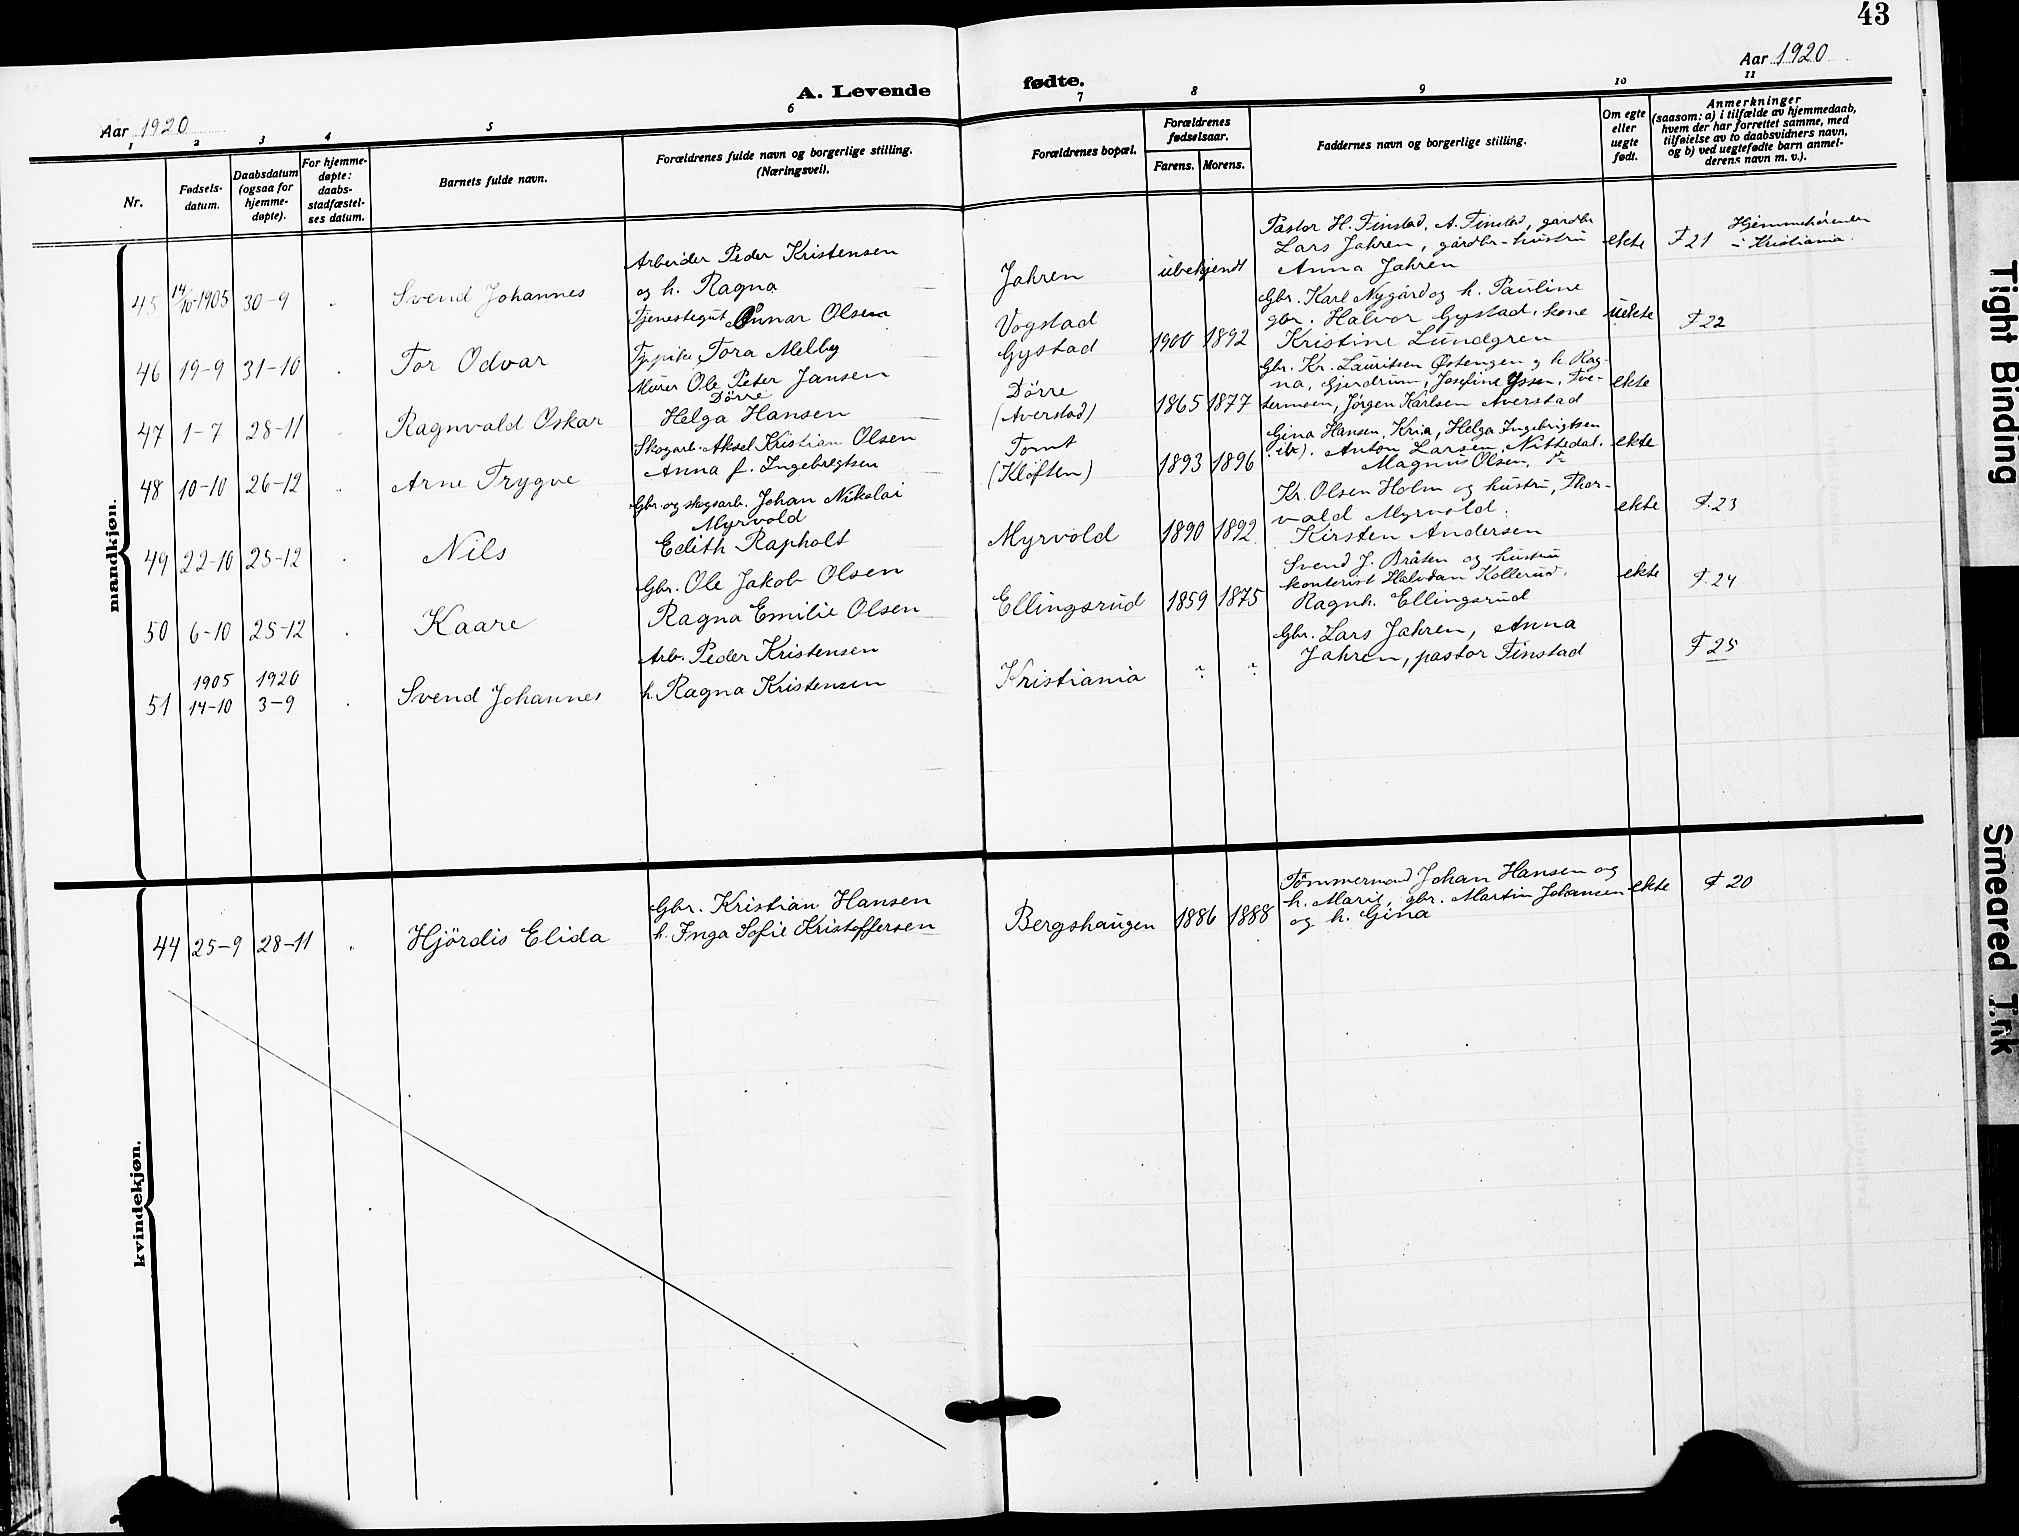 43
Aar 1920
A. Levende fødte.
Aar 1920
1 2 3 4 5 6 7 8 9 10 11
Nr.
Fødsels-
datum.
Daabsdatum
(ogsaa for
hjemme-
døpte).
For hjemme-
døpte:
daabs-
stadfæstel-
ses datum.
Barnets fulde navn.
Forældrenes fulde navn og borgerlige stilling.
(Næringsvei).
Forældrenes bopæl.
Forældrenes
fødselsaar.
Farens. Morens.
Faddernes navn og borgerlige stilling.
Om egte
eller
uegte
født.
Anmerkninger
(saasom: a) i tilfælde av hjemmedaab,
hvem der har forrettet samme, med
tilføielse av to daabsvidners navn,
og b) ved uegtefødte barn anmel-
derens navn m. v.).
mandkjøn.
45 14/10-1905 30-9 Svend Johannes
Arbeider Peder Kristensen
og h. Ragna
Jahren
ubekjendt
Pastor H. Finstad, A. Finstad, gardbr
Lars Jahren, gårdbr-hustru
Anna Jahren
ekte
F 21
Hjemmehørende
i Kristiania.
46 19-9 31-10 Tor Odvar
Tjenestegut Gunnar Olsen
Tora Melby
Vogstad
Gystad
1900 1892
Gbr. Karl Nygård og h. Pauline
gbr. Halvor Gystad, kone
Kristine Lundgren
uekte
F 22
47 1-7 28-11 Ragnvald Oskar
Murer Ole Peter Jansen
Dörre
Helga Hansen
Dörre
(Averstad)
1865 1877
Gbr. Kr. Lauritsen Østengen og h. Rag-
na, Gjerdrum, Josefine Tve-
termoen, Jørgen Karlsen Averstad
ekte
48 10-10 26-12 Arne Trygve
Skogarb. Aksel Kristian Olsen
Anna f. Ingebregtsen
Tomt
(Kløften)
1893 1896
Gina Hansen, Kria, Helga Ingebrigtsen
ib). Anton Larsen, Nittedal.
Magnus Olsen,
ekte
49 22-10 25-12 Nils
Gbr. og skogsarb. Johan Nikolai
Myrvold
Edith Rapholt
Myrvold
1890 1892
Kr. Olsen Holm og hustru, Thor-
vald Myrvold.
Kirsten Andersen
ekte
F. 23
50 6-10 25-12 Kaare
Gbr. Ole Jakob Olsen
Ragna Emilie Olsen
Ellingsrud
1859 1875
Svend J. Bråten og hustru
kontorist Halvdan Kollerud,
Ragnh. Ellingsrud
ekte
F. 24
51 1905 14-10 1920 3-9 Svend Johannes
Arb. Peder Kristensen
h. Ragna Kristensen
Kristiania
? ?
Gbr. Lars Jahren, Anna
Jahren, pastor Finstad
F 25
kvindekjøn.
44 25-9 28-11 Hjördis Elida
Gbr. Kristian Hansen
h. Inga Sofie Kristoffersen
Bergshaugen
1886 1888
Tömmermand Johan Hansen og
h. Marie, gbr. Martin Johansen
og h. Gina
ekte
F 20
Tight Binding
Smeared Ink